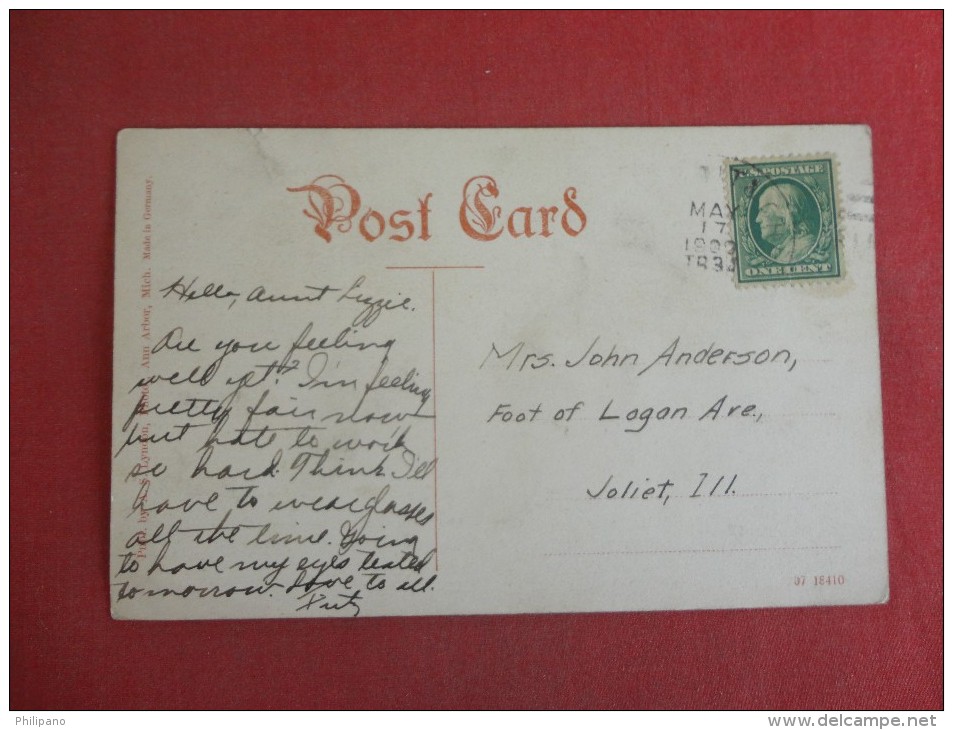 Post Card
U.S. POSTAGE
ONE CENT
MAY
17
Hello, Aunt Lizzie.
Are you feeling
well yet? I'm feeling
pretty fair now
but hate to work
so hard. Think I'll
have to wear glasses
all the time. Going
to have my eyes tested
tomorrow. Love to all.
Mrs. John Anderson,
Foot of Logan Ave.,
Joliet, Ill.
Publ. by A. S. Lyndon, Photog. Ann Arbor, Mich. Made in Germany.
97 18410
Philipano
www.delcampe.net